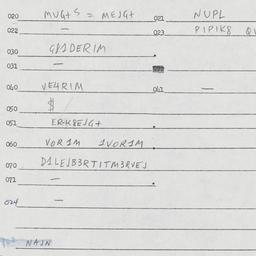 020 MUG+S = MEJG+ 021 NUPL
022 — 023 PIPIK8
030 GP1DERIM
031 —
040 VE4RIM 041 —
050 $
051 ERK8EJG+
060 VOR1M 1VOR1M
070 D1LEJB3RTITM3RVEJ
071 —
024 —
NAJN